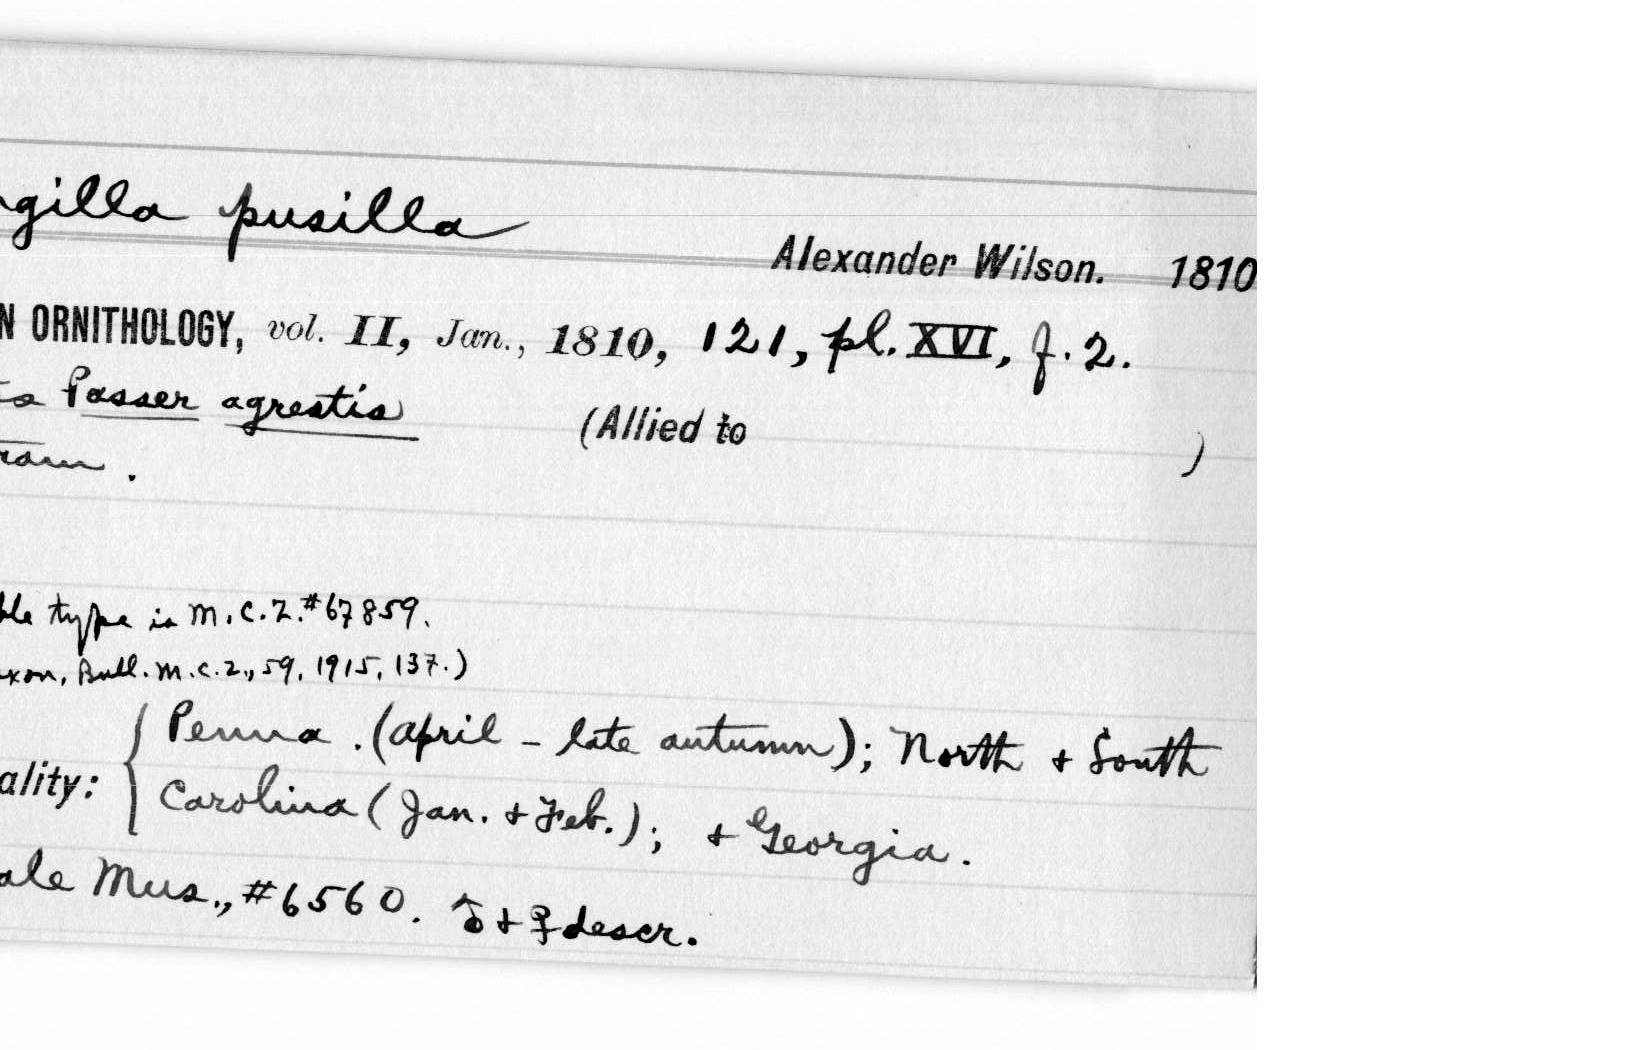 gilla pusilla
Alexander Wilson. 1810
N ORNITHOLOGY, vol. II, Jan., 1810, 121, pl. XVI, f. 2.
Passer agrestis (Allied to )
type is M.C.Z. #67859.
xon, Bull. M.C.Z., 59, 1915, 137.)
Penna. (April - late autumn); North + South
ality: Carolina (Jan. + Feb.); + Georgia.
ale Mus., #6560. ♂ + ♀ descr.